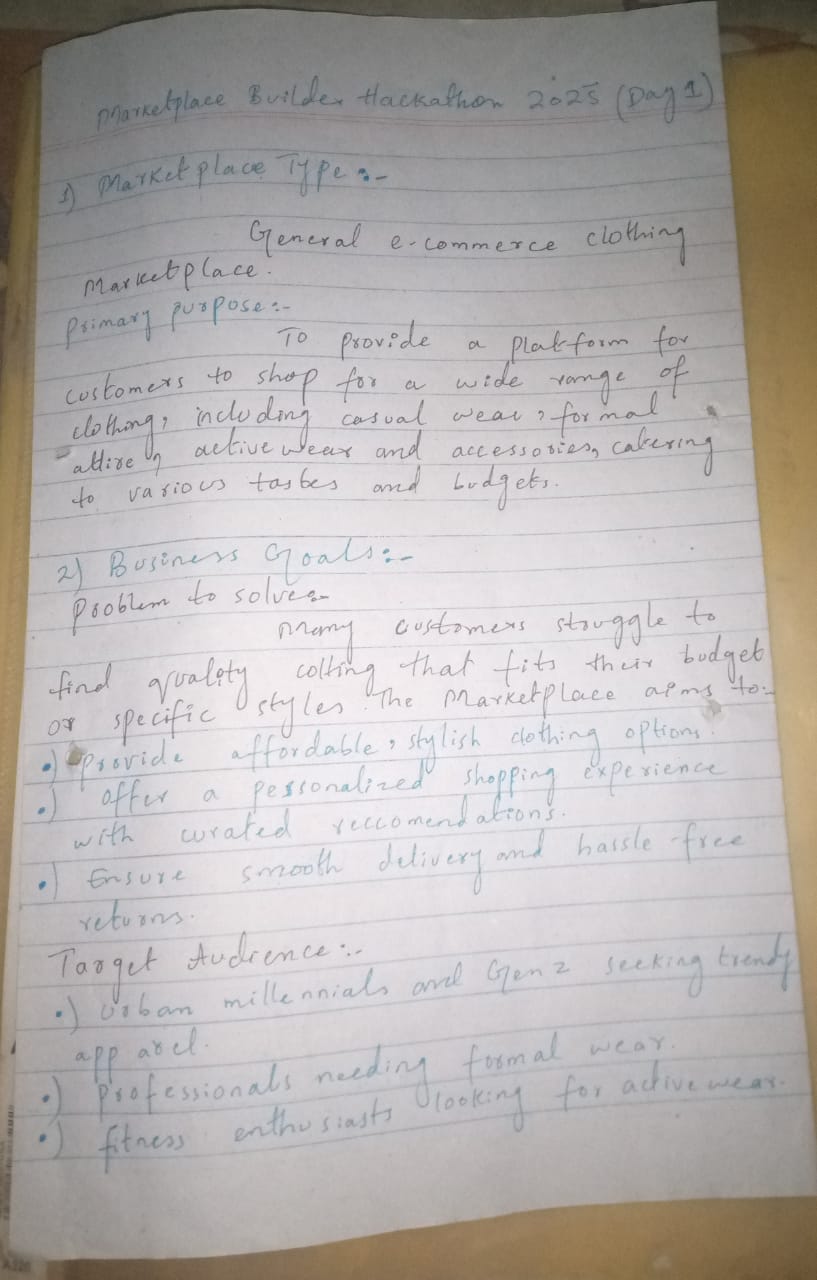 Marketplace Builder Hackathon 2025 (Day 1)
1) Market place Type :-
General e-commerce clothing
Marketplace.
Primary purpose :-
To provide a platform for
customers to shop for a wide range of
clothing, including casual wear, formal
attire, active wear and accessories, catering
to various tastes and budgets.
2) Business Goals :-
Problem to solve :-
Many customers struggle to
find quality colthing that fits their budget
or specific styles. The Marketplace aims to :-
•) Provide affordable, stylish clothing options.
•) offer a personalized shopping experience
with curated reccomendations.
•) Ensure smooth delivery and hassle-free
returns.
Target Audience :-
•) Urban millennials and Gen z seeking trendy
apparel.
•) Professionals needing formal wear.
•) fitness enthusiasts looking for active wear.